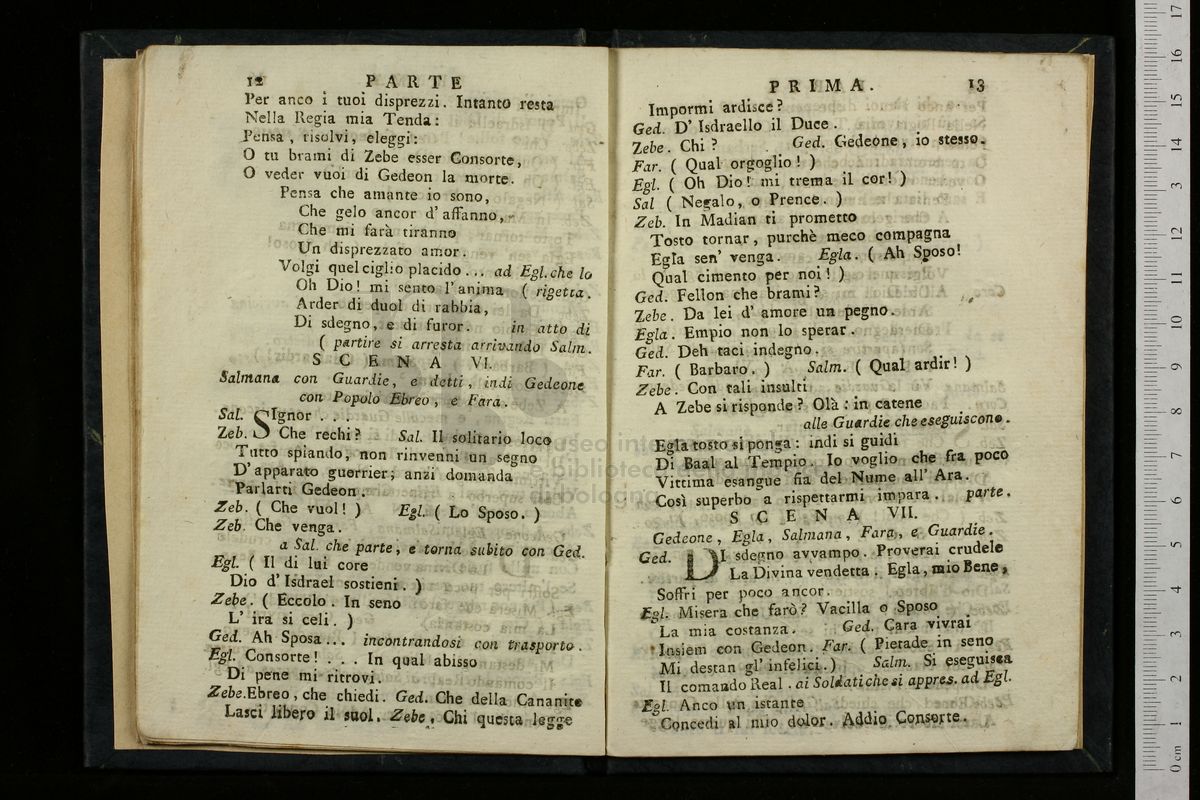 12 PARTE
Per anco i tuoi disprezzi. Intanto resta
Nella Regia mia Tenda:
Pensa, risolvi, eleggi:
O tu brami di Zebe esser Consorte,
O veder vuoi di Gedeon la morte.
Pensa che amante io sono,
Che gelo ancor d'affanno,
Che mi farà tiranno
Un disprezzato amor.
Volgi quel ciglio placido... ad Egl. che lo
Oh Dio! mi sento l'anima ( rigetta.
Arder di duol di rabbia,
Di sdegno, e di furor. in atto di
( partire si arresta arrivando Salm.
SCENA VI.
Salmana con Guardie, e detti, indi Gedeone
con Popolo Ebreo, e Fara.
Sal. SIgnor . .
Zeb. Che rechi? Sal. Il solitario loco
Tutto spiando, non rinvenni un segno
D'apparato guerrier; anzi domanda
Parlarti Gedeon.
Zeb. ( Che vuol! ) Egl. ( Lo Sposo. )
Zeb. Che venga.
a Sal. che parte, e torna subito con Ged.
Egl. ( Il di lui core
Dio d'Isdrael sostieni. )
Zebe. ( Eccolo. In seno
L'ira si celi. )
Ged. Ah Sposa... incontrandosi con trasporto.
Egl. Consorte! . . . In qual abisso
Di pene mi ritrovi.
Zebe. Ebreo, che chiedi. Ged. Che della Cananite
Lasci libero il suol. Zebe. Chi questa legge
PRIMA. 13
Impormi ardisce?
Ged. D'Isdraello il Duce.
Zebe. Chi? Ged. Gedeone, io stesso.
Far. ( Qual orgoglio! )
Egl. ( Oh Dio! mi trema il cor! )
Sal ( Negalo, o Prence. )
Zeb. In Madian ti prometto
Tosto tornar, purchè meco compagna
Egla sen' venga. Egla. ( Ah Sposo!
Qual cimento per noi! )
Ged. Fellon che brami?
Zebe. Da lei d'amore un pegno.
Egla. Empio non lo sperar.
Ged. Deh taci indegno.
Far. ( Barbaro. ) Salm. ( Qual ardir! )
Zebe. Con tali insulti
A Zebe si risponde? Olà: in catene
alle Guardie che eseguiscono.
Egla tosto si ponga: indi si guidi
Di Baal al Tempio. Io voglio che fra poco
Vittima esangue fia del Nume all'Ara.
Così superbo a rispettarmi impara. parte.
SCENA VII.
Gedeone, Egla, Salmana, Fara, e Guardie.
Ged. DI sdegno avvampo. Proverai crudele
La Divina vendetta. Egla, mio Bene,
Soffri per poco ancor.
Egl. Misera che farò? Vacilla o Sposo
La mia costanza. Ged. Cara vivrai
Insiem con Gedeon. Far. ( Pietade in seno
Mi destan gl'infelici. ) Salm. Si eseguisca
Il comando Real. ai Soldati che si appres. ad Egl.
Egl. Anco un istante
Concedi al mio dolor. Addio Consorte.